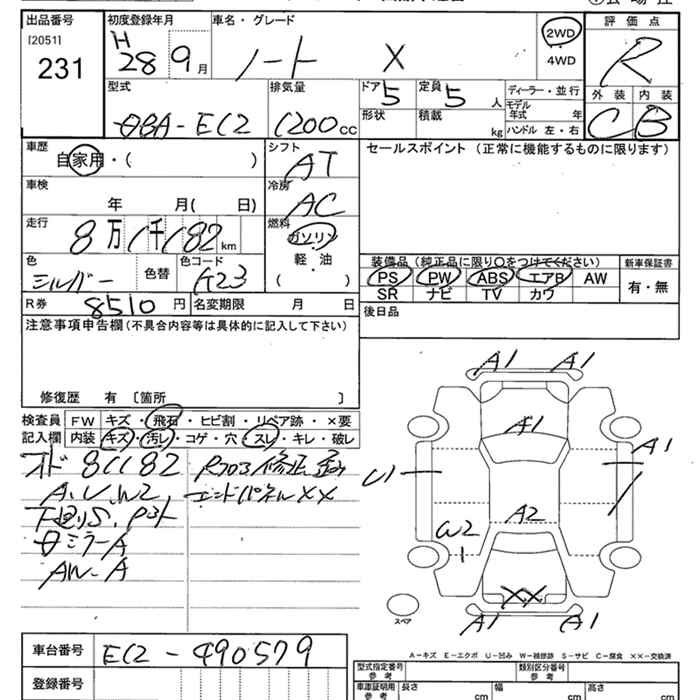 出品番号
[2051]
231
初度登録年月
H
28 9月
車名・グレード
ノート X
2WD
4WD
評価点
R
外装 内装
C B
型式
DBA-E12
排気量
1200cc
ドア 5
形状
定員 5 人
積載 kg
ディーラー・並行
モデル年式 年
ハンドル 左・右
車歴
自家用・( )
シフト
AT
セールスポイント(正常に機能するものに限ります)
車検
年 月( 日)
冷房
AC
走行
8万1千182km
燃料
ガソリン
軽・油
( )
色
シルバー
色替
色コード
K23
装備品(純正品に限り○をつけてください)
PS PW ABS エアB AW
SR ナビ TV カワ
新車保証書
有・無
R券
8510円
名変期限 月 日
後日品
注意事項申告欄(不具合内容等は具体的に記入して下さい)
修復歴 有 〔箇所 〕
検査員記入欄
FW キズ・飛石・ヒビ割・リペア跡・×要
内装 キズ・汚レ・コゲ・穴・スレ・キレ・破レ
オド 81182
A.U.W2
下廻りS.
ミラーA
AW-A
修正歪み
エンドパネルXX
A1 A1
A1
A1
U1
A2
W2
XX
A1 A1
スペア
A-キズ E-エクボ U-凹み W-補修跡 S-サビ C-腐食 ××-交換済
車台番号
E12-490579
登録番号
型式指定番号
参考
類別区分番号
参考
車庫証明用
参考
長さ cm
幅 cm
高さ cm